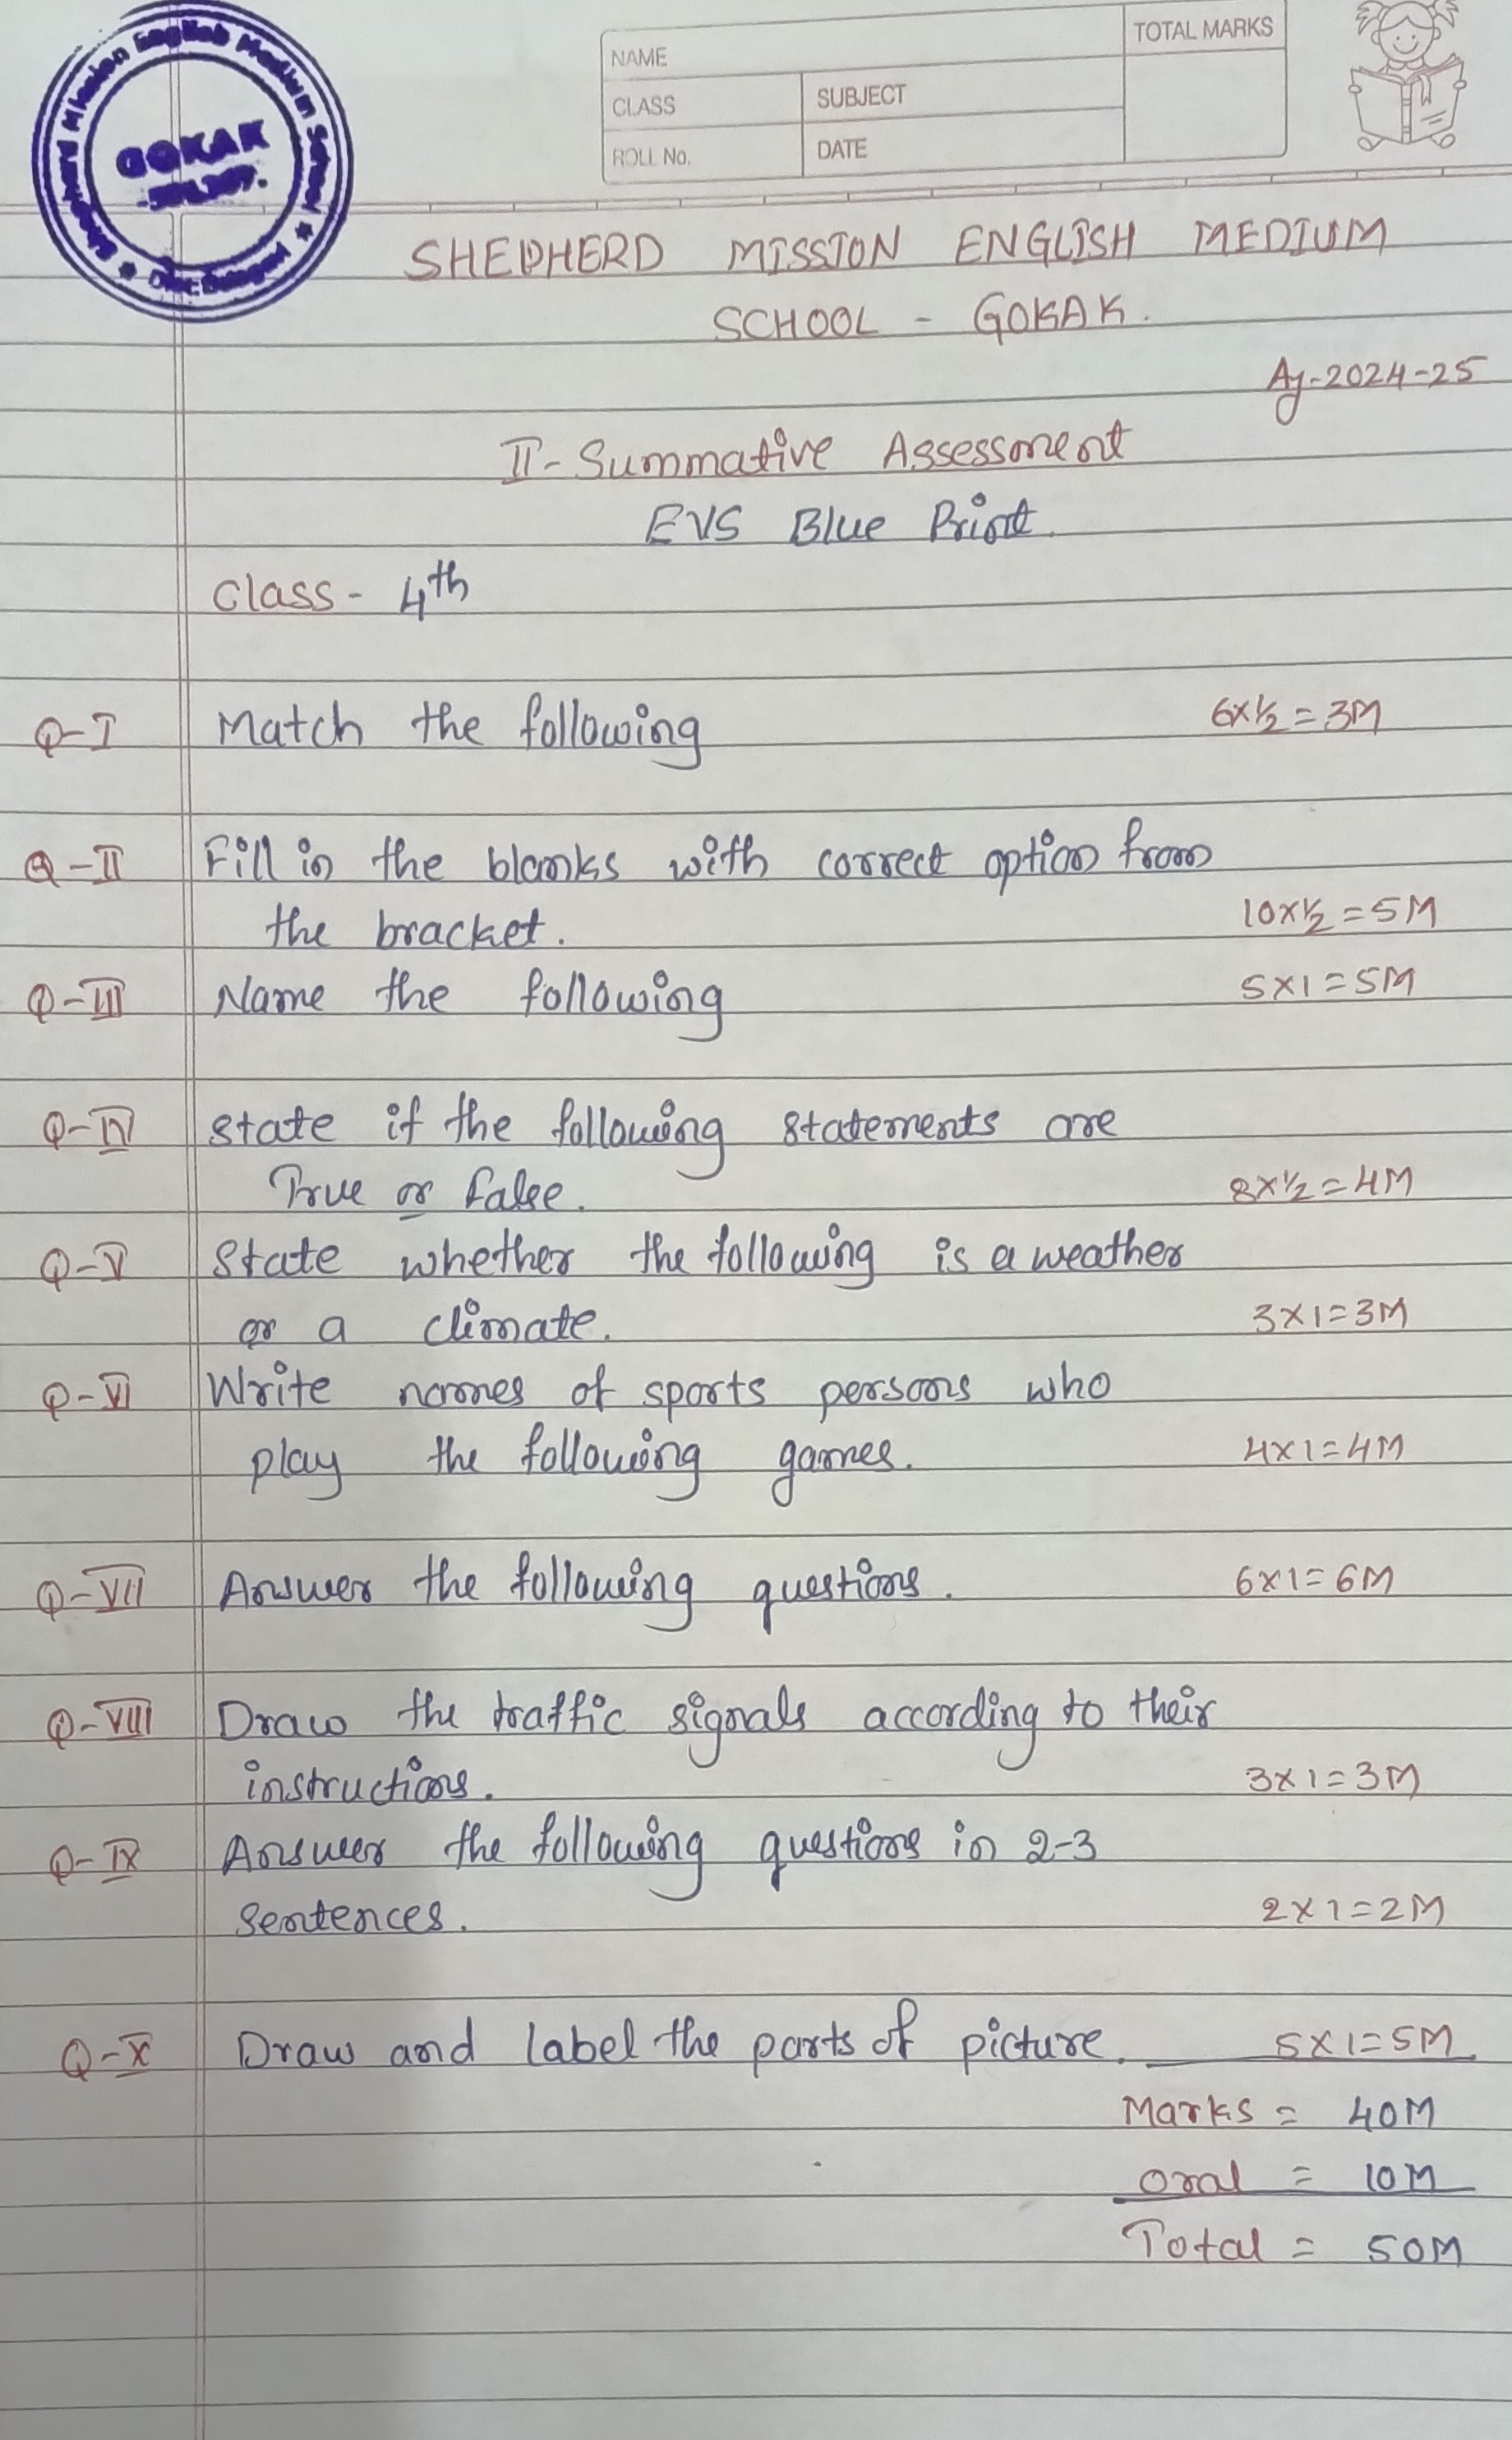 NAME
TOTAL MARKS
CLASS
SUBJECT
ROLL No.
DATE
English Medium School
GOKAK
SHEPHERD MISSION ENGLISH MEDIUM
SCHOOL - GOKAK.
Ay-2024-25
II - Summative Assessment
EVS Blue Print.
Class - 4th
Q-I Match the following 6x½=3M
Q-II Fill in the blanks with correct option from
the bracket. 10x½=5M
Q-III Name the following 5x1=5M
Q-IV State if the following statements are
True or false. 8x½=4M
Q-V State whether the following is a weather
or a climate. 3x1=3M
Q-VI Write names of sports persons who
play the following games. 4x1=4M
Q-VII Answer the following questions. 6x1=6M
Q-VIII Draw the traffic signals according to their
instructions. 3x1=3M
Q-IX Answer the following questions in 2-3
sentences. 2x1=2M
Q-X Draw and label the parts of picture. 5x1=5M
Marks = 40M
Oral = 10M
Total = 50M